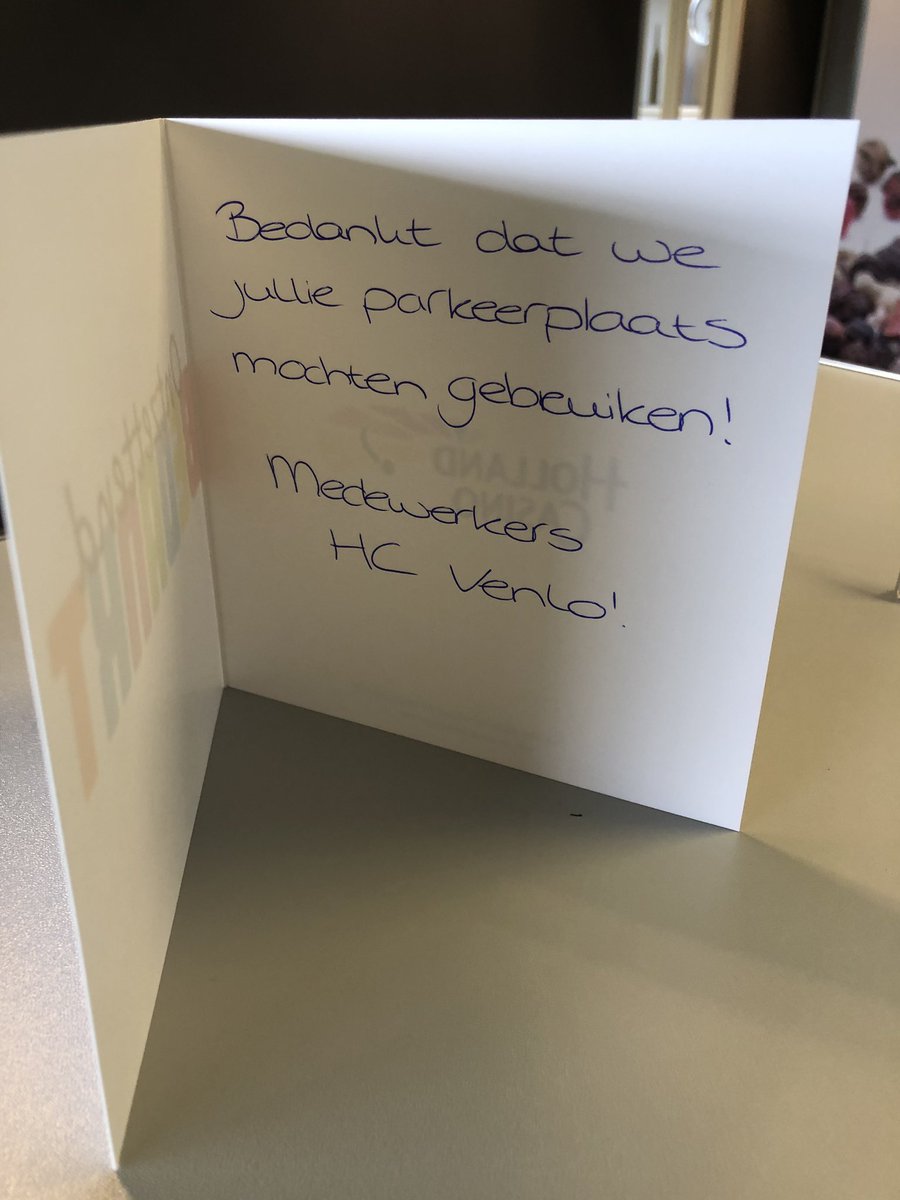 Bedankt dat we
jullie parkeerplaats
mochten gebewiken!
Medewerkers
HC Venlo!
HOLLAND
CASINO